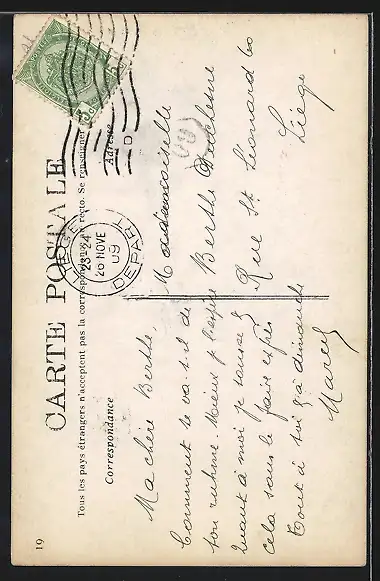 CARTE POSTALE
Tous les pays étrangers n'acceptent pas la correspondance au recto. Se renseigner
Correspondance
Adresse
D
LIEGE
23-24
26 NOVE
09
DEPART
5
Ma chère Berthe,
Comment te va-t-il de
ton ruhme. Mieux j'espère
quant à moi je tousse
cela sans le faire exprès
Tout à toi & à dimanche
Marcel
Mademoiselle
Berthe Duchesne
Rue St Léonard 60
Liège
19